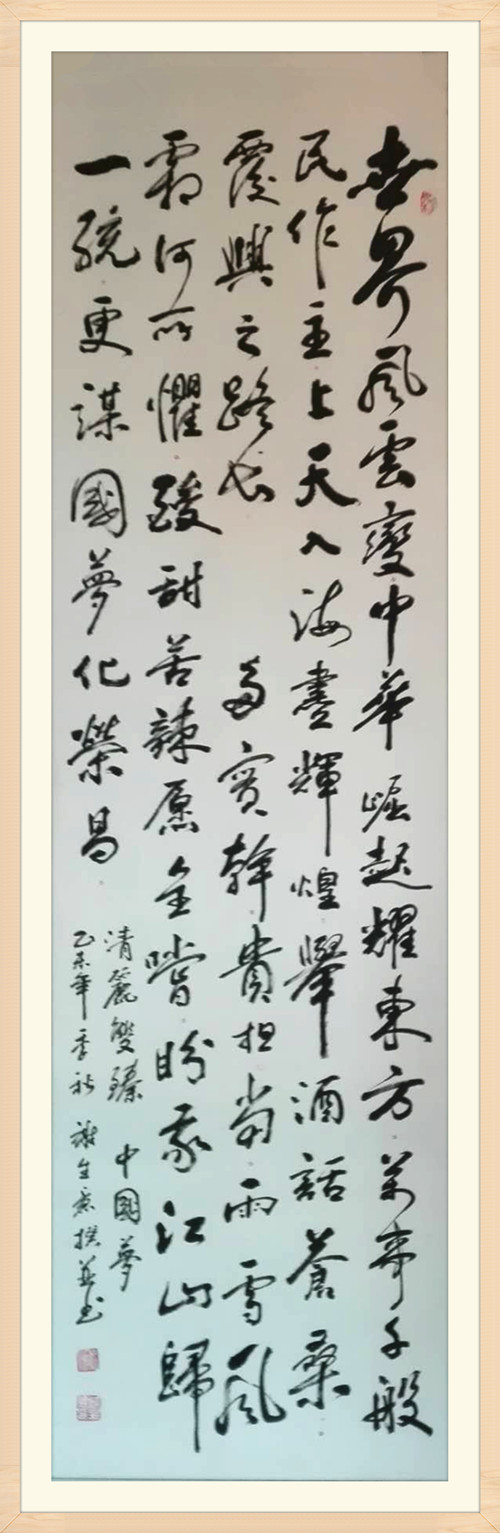 世界風雲變中華崛起耀東方万事千般
民作主上天入海盡輝煌舉酒話蒼桑
覆興之路长 多實幹貴担當雨雪風
霜何所懼酸甜苦辣愿全嚐盼我江山歸
一統更謀國夢化榮昌
清麗雙臻 中國夢
乙未年季秋 謝生意撰並书